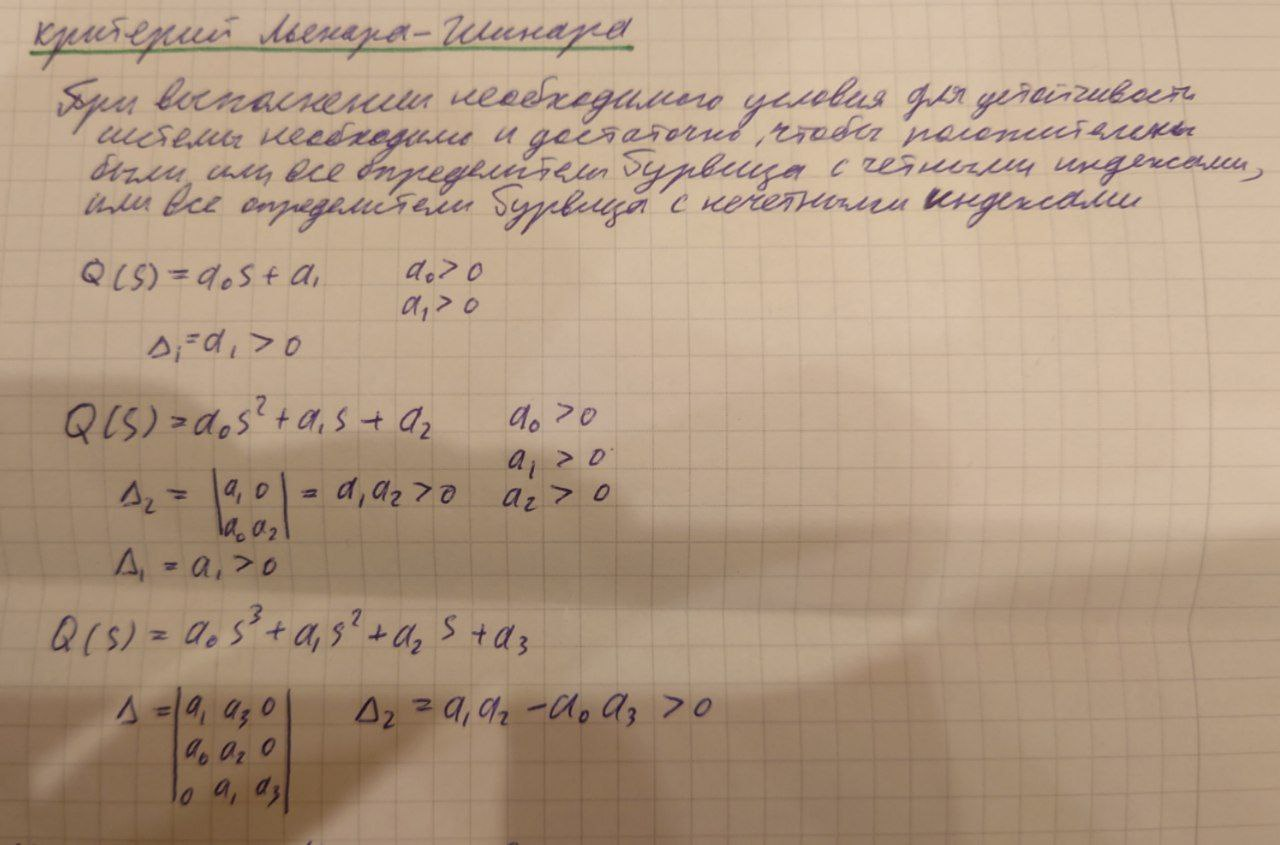 критерий Льенара-Шипара
При выполнении необходимого условия для устойчивости
системы необходимо и достаточно, чтобы положительны
были или все определители Гурвица с четными индексами,
или все определители Гурвица с нечетными индексами
Q(s) = a₀s + a₁ a₀ > 0
a₁ > 0
Δ₁ = a₁ > 0
Q(s) = a₀s² + a₁s + a₂ a₀ > 0
a₁ > 0
Δ₂ = |a₁ 0| = a₁a₂ > 0 a₂ > 0
|a₀ a₂|
Δ₁ = a₁ > 0
Q(s) = a₀s³ + a₁s² + a₂s + a₃
Δ = |a₁ a₃ 0| Δ₂ = a₁a₂ - a₀a₃ > 0
|a₀ a₂ 0|
|0 a₁ a₃|